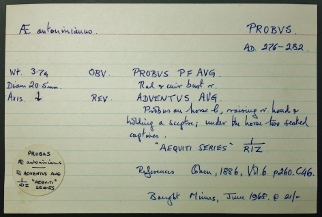 Æ antoninianus.
PROBVS.
AD. 276-282
Wt. 3.7g
OBV.
PROBVS P F AVG.
Diam 20.5mm.
Rad & cuir bust r.
Axis. ↓
REV.
ADVENTVS AVG
Probus on horse l, raising r. hand &
holding a sceptre; under the horse two seated
captives.
"AEQUITI SERIES" I
R I Z
References Cohen, 1886, Vol. 6 p260. C46.
Bought Minns, June 1968. @ 21/-
PROBUS
Æ antoninianus
ADVENTUS AUG
"AEQUITI"
SERIES